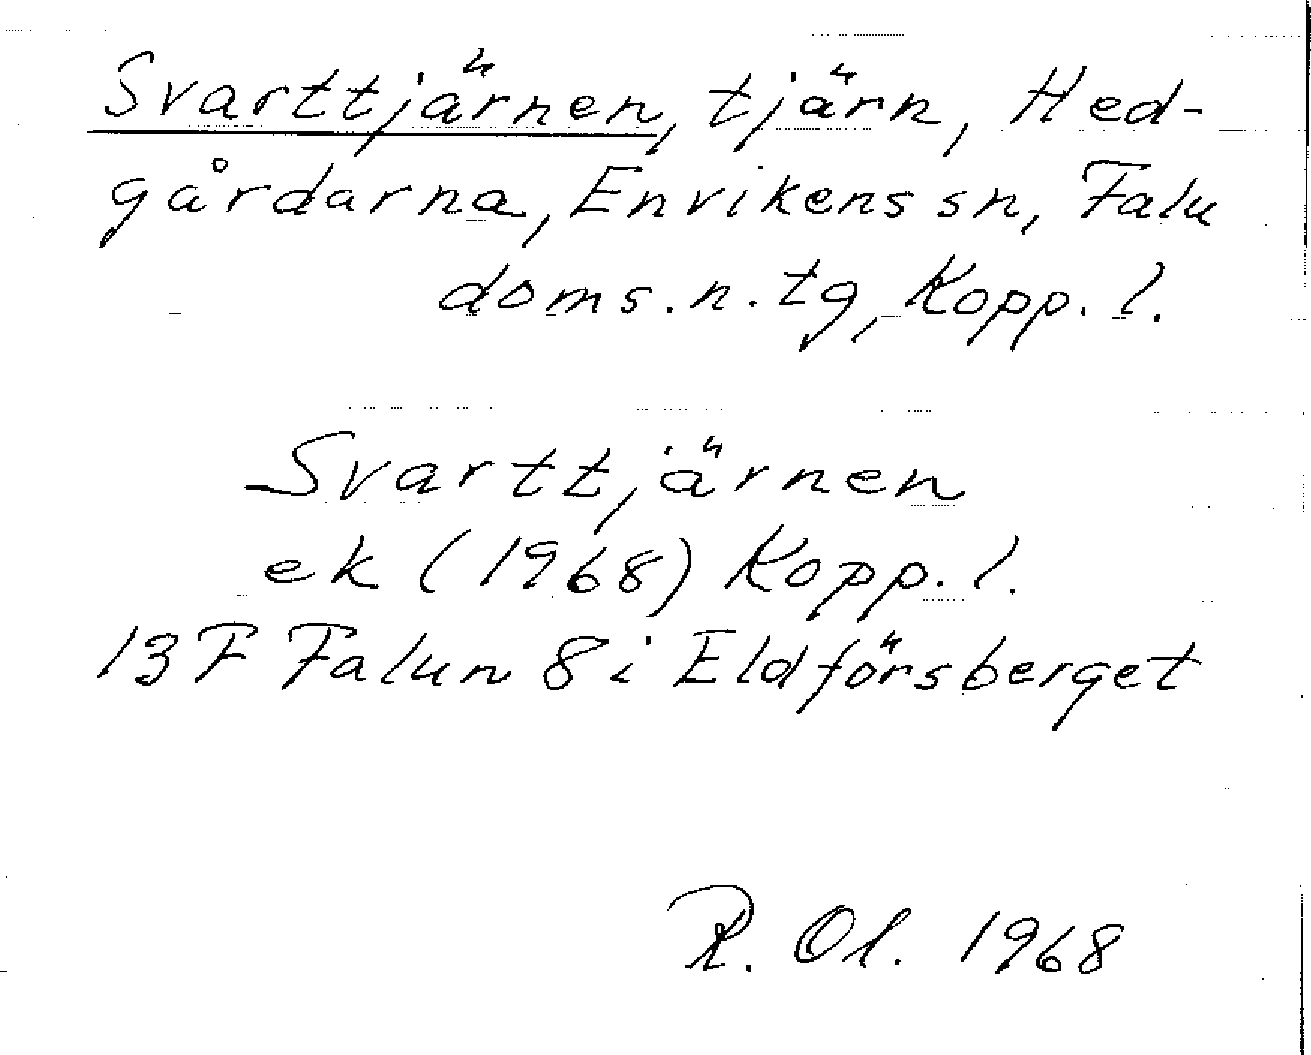 Svarttjärnen, tjärn, Hed-
gårdarna, Envikens sn, Falu
doms.n.tg, Kopp.l.
Svarttjärnen
ek (1968) Kopp.l.
13F Falun 8i Eldförsberget
R. Ol. 1968